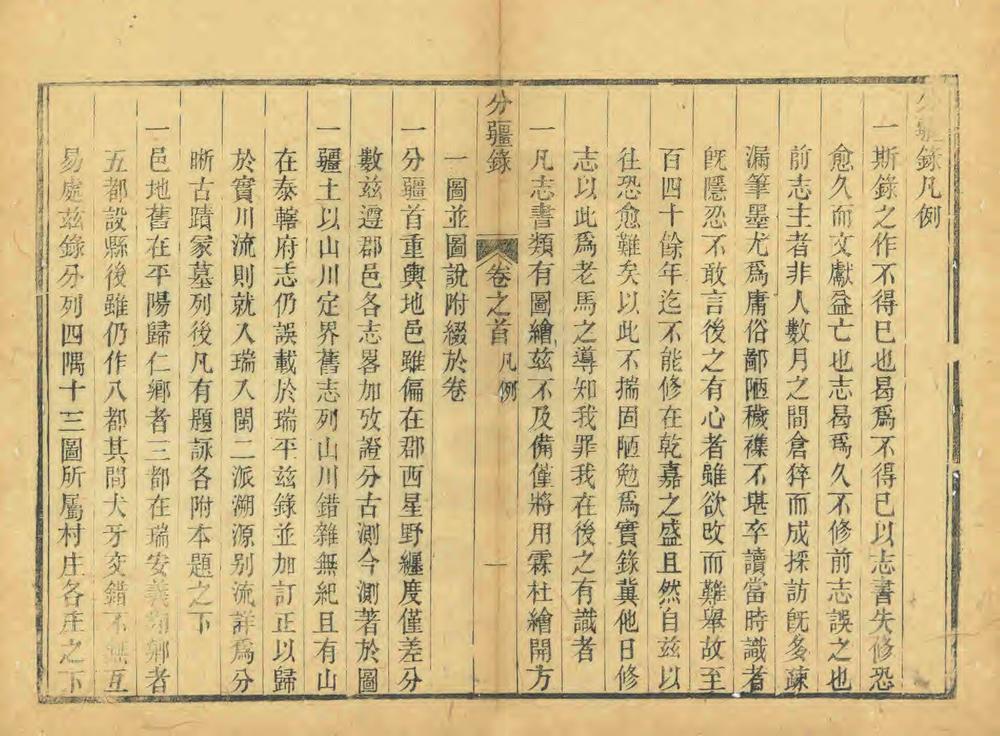 分疆錄凡例
一斯錄之作不得已也曷爲不得已以志書失修恐
愈久而文獻益亡也志曷爲久不修前志誤之也
前志主者非人數月之間倉猝而成採訪旣多疎
漏筆墨尤爲庸俗鄙陋穢襍不堪卒讀當時識者
旣隱忍不敢言後之有心者雖欲改而難舉故至
百四十餘年迄不能修在乾嘉之盛且然自兹以
往恐愈難矣以此不揣固陋勉爲實錄冀他日修
志以此爲老馬之導知我罪我在後之有識者
一凡志書類有圖繪兹不及備僅將用霖杜繪開方
分疆錄 卷之首 凡例 一
一圖並圖說附綴於卷
一分疆首重輿地邑雖偏在郡西星野纏度僅差分
數兹遵郡邑各志畧加攷證分古測今測著於圖
一疆土以山川定界舊志列山川錯雜無紀且有山
在泰轄府志仍誤載於瑞平兹錄並加訂正以歸
於實川流則就入瑞入閩二派溯源别流詳爲分
晰古蹟冢墓列後凡有題詠各附本題之下
一邑地舊在平陽歸仁鄉者三都在瑞安義翔鄉者
五都設縣後雖仍作八都其間犬牙交錯不無互
易處兹錄分列四隅十三圖所屬村庄各庄之下